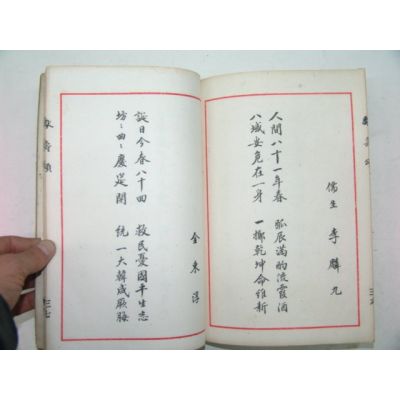 儒生 李麟九
人間八十一年春 弧辰滿酌流霞酒
八域安危在一身 一擲乾坤命維新
壽頌
三六
金東淳
誕日今春八十回 救民憂國平生志
坊〻曲〻慶筵開 統一大韓成厥
壽頌
三七